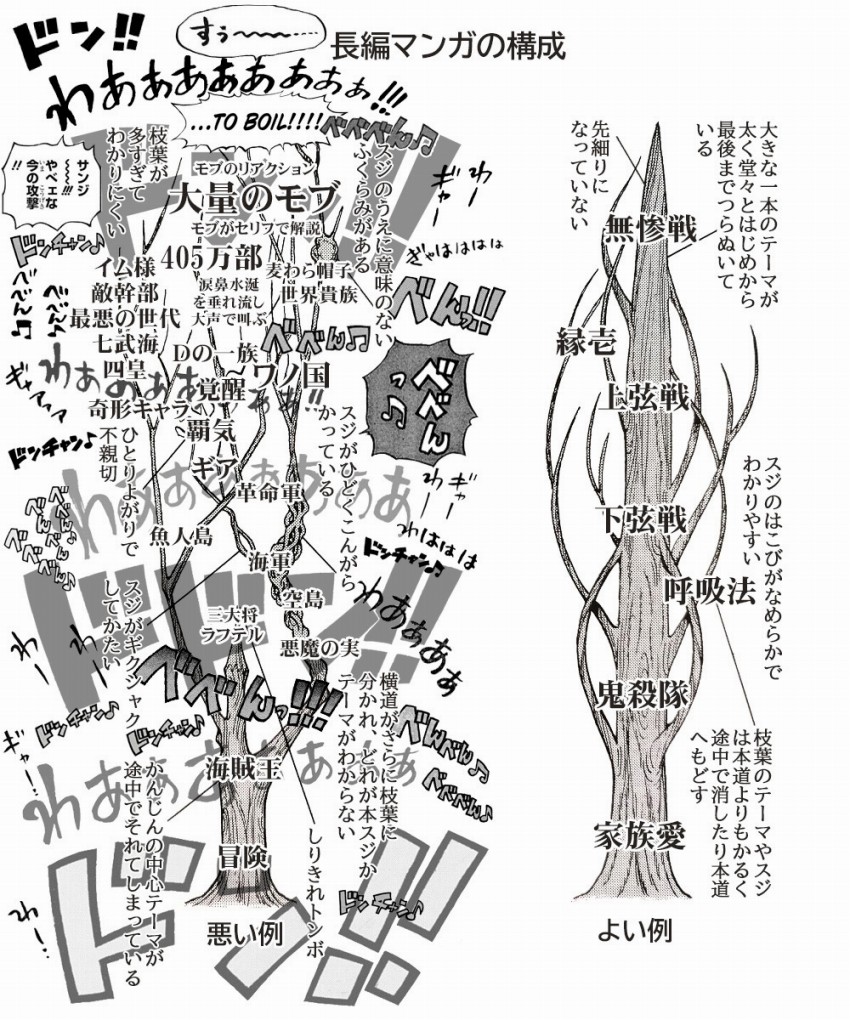 長編マンガの構成
ドン!!
すぅ〜〜〜……
わあぁぁあぁぁぁぁ!!!
...TO BOIL!!!!
べべべん♪
サンジ
〜〜〜!!!
やべェな
今の攻撃
!!
枝葉が
多すぎて
わかりにくい
モブのリアクション
大量のモブ
モブがセリフで解説
スジのうえに意味のない
ふくらみがある
わー
ギャー
ドンチャン♪
ぎゃはははは
405万部
麦わら帽子
イム様
涙鼻水涎
を垂れ流し
大声で叫ぶ
世界貴族
敵幹部
最悪の世代
べんっ!!
べべん♪
七武海
Dの一族
四皇
ワノ国
覚醒
奇形キャラ
べべべんっ♪
覇気
ギャアッッ
ドンチャン♪
ひとりよがりで
不親切
スジがひどくこんがら
かっている
ギア
革命軍
ギャー
わー
魚人島
わははは
ドンチャン♪
海軍
空島
わあぁぁぁ
三大将
ラフテル
悪魔の実
スジがギクシャク
してかたい
べべんっ!!!
ドンチャン♪
横道がさらに枝葉に
分かれ、どれが本スジか
テーマがわからない
べんべん♪
べべべん♪
海賊王
冒険
かんじんの中心テーマが
途中でそれてしまっている
しりきれトンボ
ドンチャン♪
ドン!!
悪い例
大きな一本のテーマが
太く堂々とはじめから
最後までつらぬいて
いる
先細りに
なっていない
無惨戦
縁壱
上弦戦
スジのはこびがなめらかで
わかりやすい
下弦戦
呼吸法
鬼殺隊
枝葉のテーマやスジ
は本道よりもかるく
途中で消したり本道
へもどす
家族愛
よい例